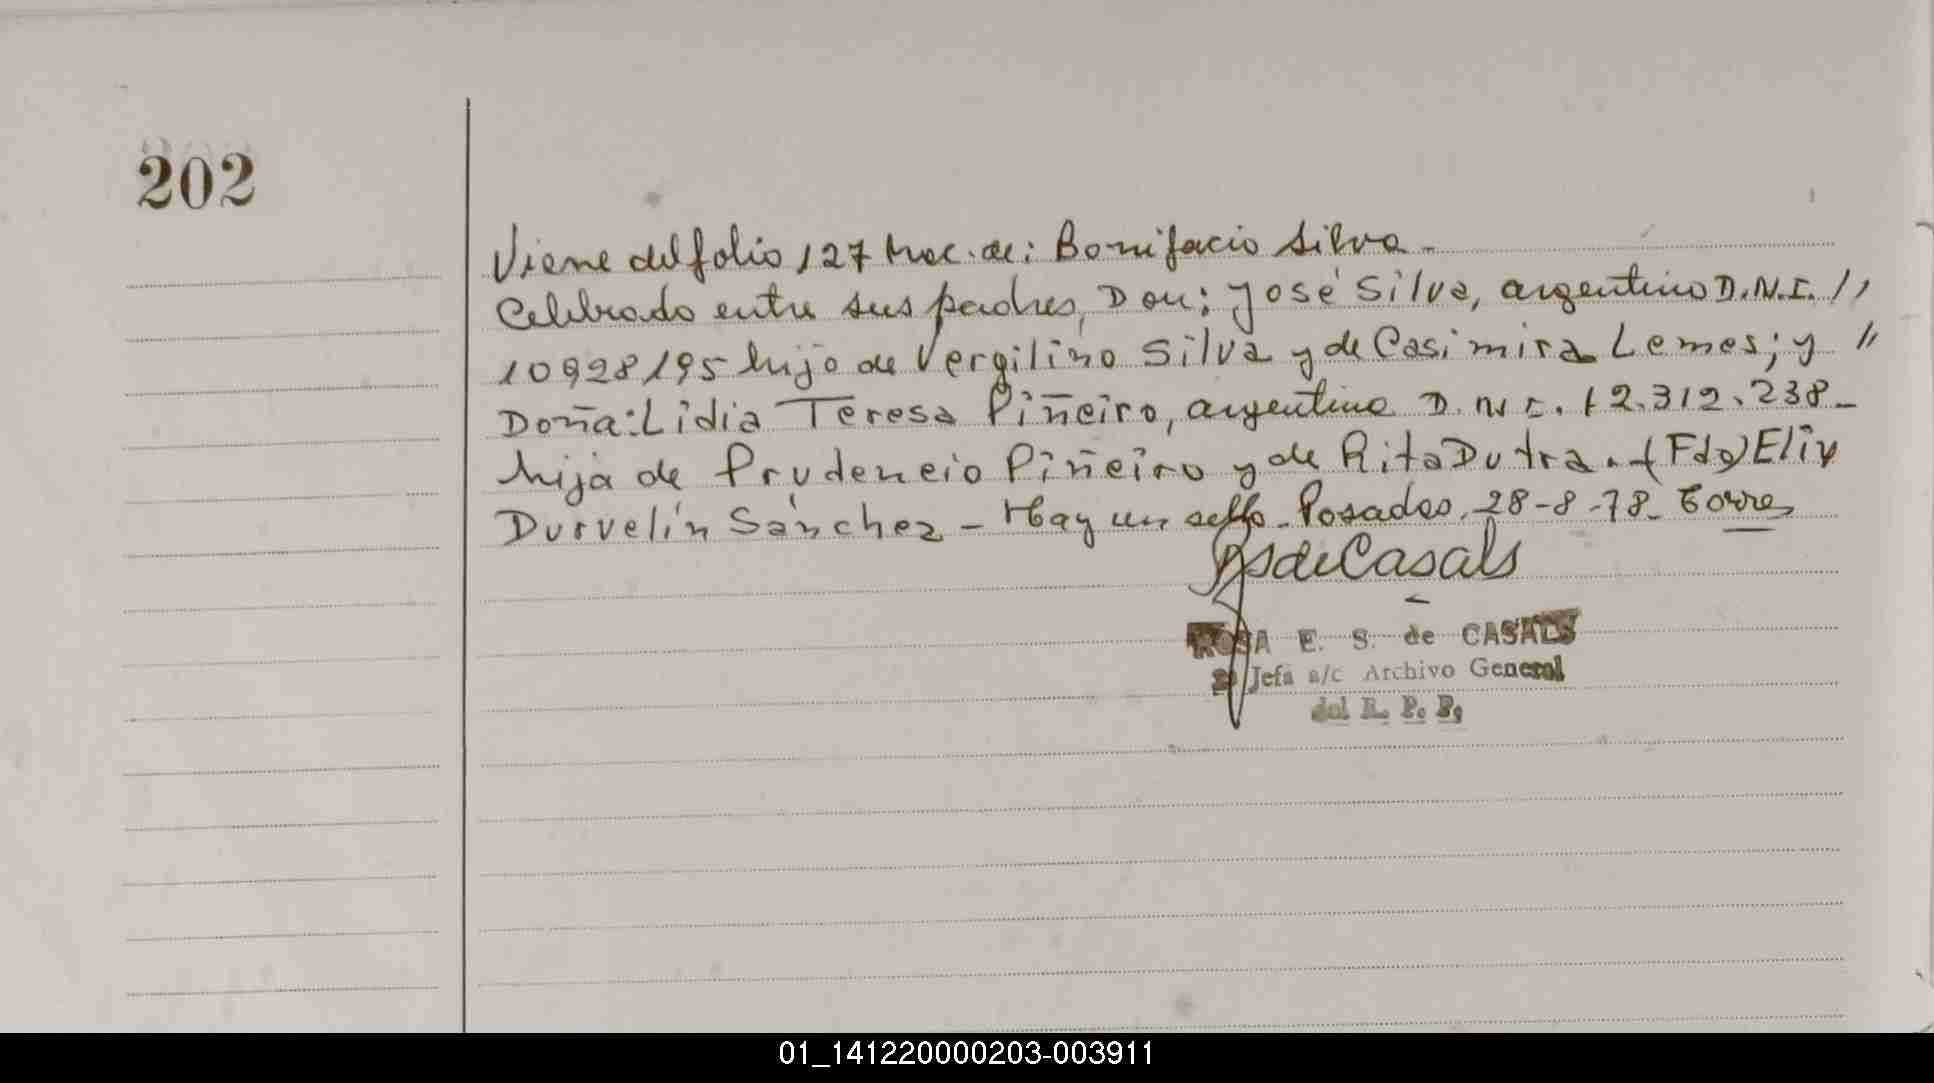 202
Viene del folio 127 Nac. de: Bonifacio Silva -
Celebrado entre sus padres, Don: José Silva, argentino D.N.I. //
10928195 hijo de Vergilino Silva y de Casimira Lemes; y //
Doña: Lidia Teresa Piñeiro, argentina D.N.I. 12.312.238-
hija de Prudencio Piñeiro y de Rita Dutra. (Fdo) Eliv
Durvelín Sánchez - Hay un sello - Posadas, 28-8-78- Torres
de Casals
ROSA E. S. de CASALS
Jefa a/c Archivo General
del R. P. P.
01_141220000203-003911